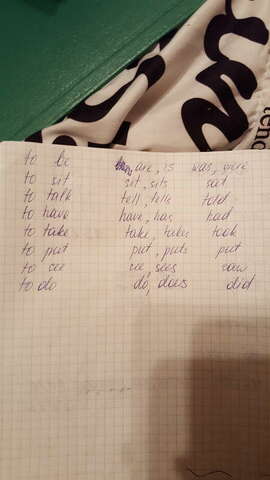 to be are, is was, were
to sit sit, sits sat
to talk tell, tells told
to have have, has had
to take take, takes took
to put put, puts put
to see see, sees saw
to do do, does did